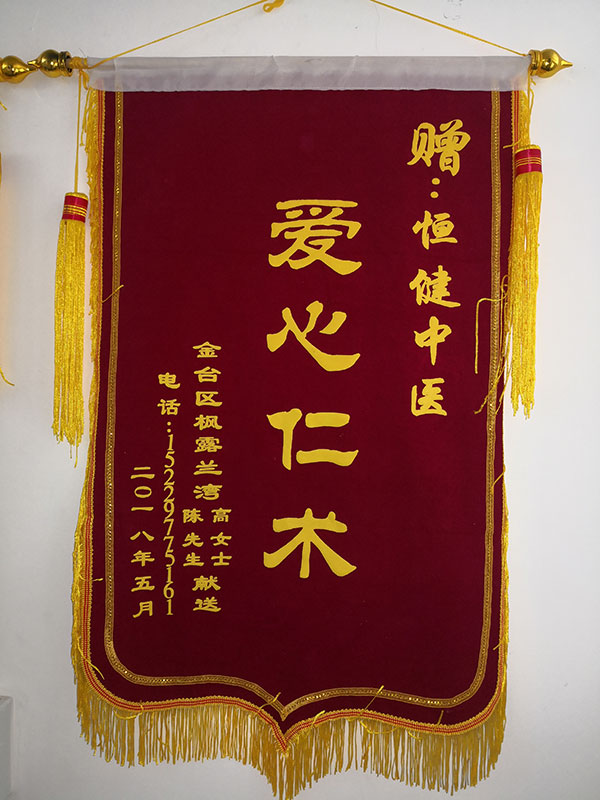 赠：恒健中医
爱心仁术
金台区枫露兰湾高女士陈先生献送
电话：15229775161
二〇一八年五月